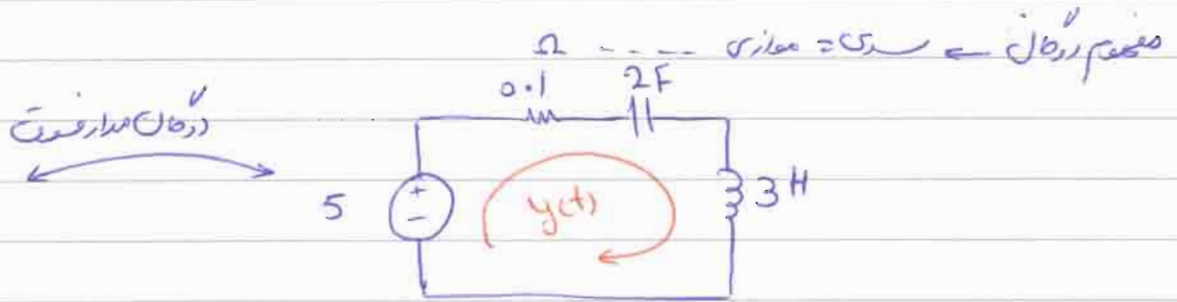 مفهوم دوگان ← سری = موازی ---- Ω
0.1 2F
دوگان مدار فوق
5 + - y(t) 3H